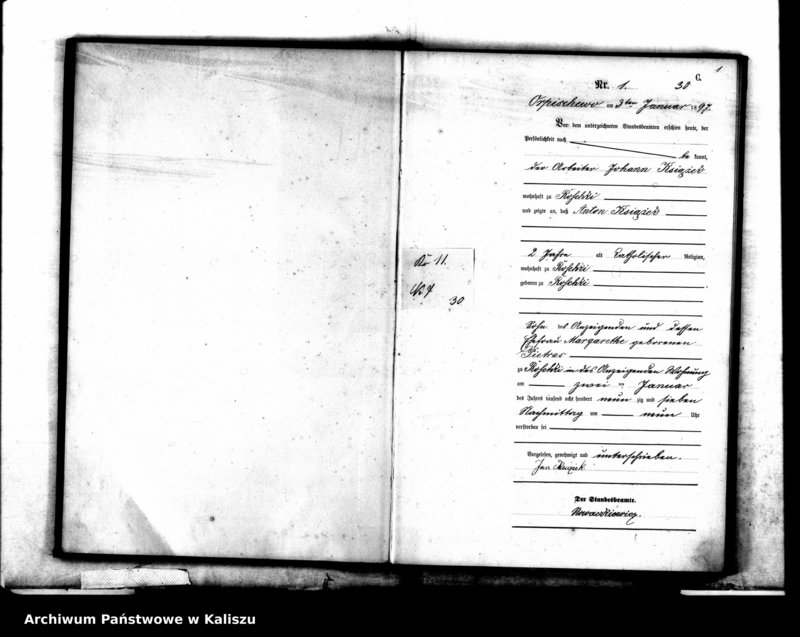 Nr. 11.
30
1
C.
Nr. 1. 30
Orpischewo am 3ten Januar 1897.
Vor dem unterzeichneten Standesbeamten erschien heute, der
Persönlichkeit nach
be kannt,
der Arbeiter Johann Książek
wohnhaft zu Roschki
und zeigte an, daß Anton Książek
2 Jahre alt katholischer Religion,
wohnhaft zu Roschki
geboren zu Roschki
Sohn des Anzeigenden und dessen
Ehefrau Margarethe geborenen
Pietras
zu Roschki in des Anzeigenden Wohnung
am zwei ten Januar
des Jahres tausend acht hundert neun zig und sieben
Nachmittag um neun Uhr
verstorben sei
Vorgelesen, genehmigt und unterschrieben.
Jan
Der Standesbeamte.
Archiwum Państwowe w Kaliszu